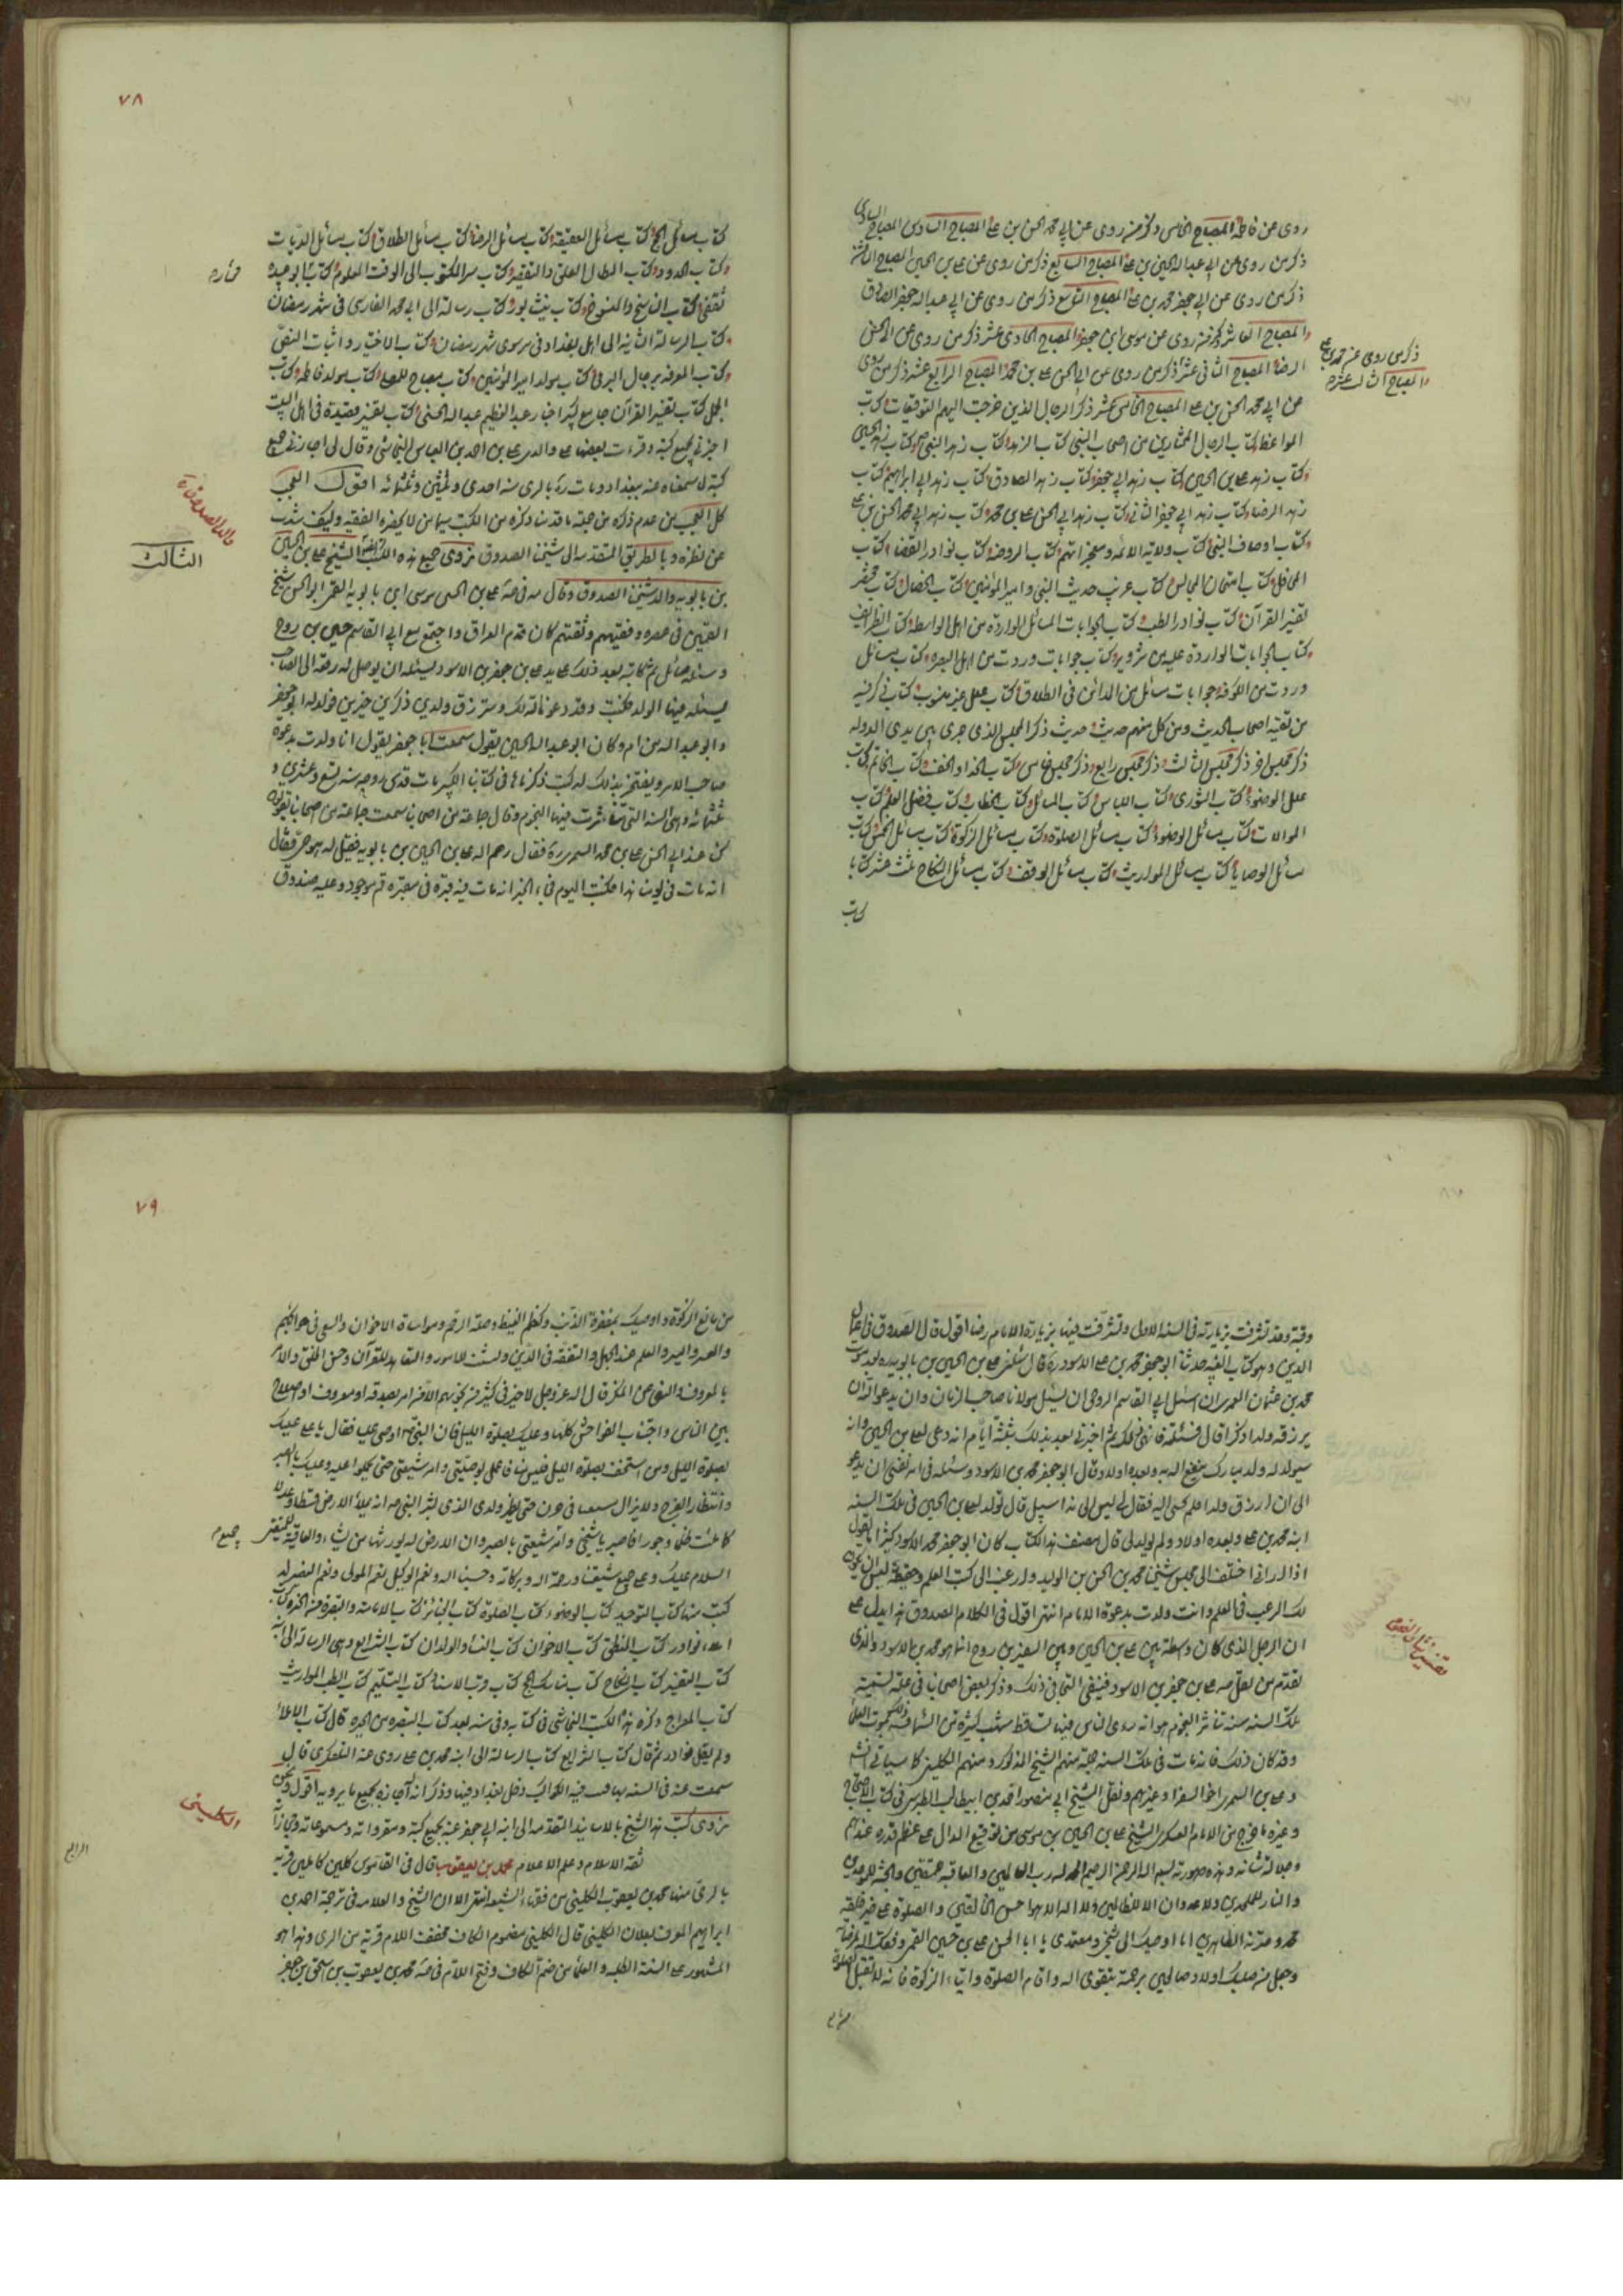 روى عن فاطمة المصباح الخامس ذكر من روى عن ابي محمد الحسن بن علي المصباح السادس
ذكر من روى عن ابي عبد الله الحسين بن علي المصباح السابع ذكر من روى عن علي بن الحسين المصباح الثامن
ذكر من روى عن ابي جعفر محمد بن علي المصباح التاسع ذكر من روى عن ابي عبد الله جعفر الصادق
المصباح العاشر ذكر من روى عن موسى بن جعفر المصباح الحادي عشر ذكر من روى عن ابي الحسن
الرضا المصباح الثاني عشر ذكر من روى عن ابي الحسن علي بن محمد المصباح الرابع عشر ذكر من روى
ذكر من روى عن محمد بن علي
المصباح الثالث عشر
عن ابي محمد الحسن بن علي المصباح الخامس عشر ذكر الرجال الذين خرجت اليهم التوقيعات كتاب
المواعظ كتاب الرجال المختارين من اصحاب النبي كتاب الزهد كتاب زهد النبي كتاب زهد الحسين
وكتاب زهد علي بن الحسين كتاب زهد ابي جعفر كتاب زهد الصادق كتاب زهد ابي ابراهيم كتاب
زهد الرضا كتاب زهد ابي جعفر الثاني كتاب زهد ابي الحسن علي بن محمد كتاب زهد ابي محمد الحسن بن علي
وكتاب اوصاف النبي كتاب دلائل الائمة ومعجزاتهم كتاب الروضة كتاب نوادر الفضائل كتاب
المحافل كتاب امتحان المجالس كتاب غريب حديث النبي وامير المؤمنين كتاب الخصال كتاب مختصر
تفسير القرآن كتاب نوادر الطب كتاب جوابات المسائل الواردة من اهل الواسط كتاب الطرائف
كتاب الجوابات الواردة عليه من قزوين كتاب جوابات وردت من البصرة كتاب مسائل
وردت من الكوفة جوابات مسائل من المدائن في الطلاق كتاب علل غير مبوب كتاب فيه ذكر
من لقيه اصحاب الحديث وعن كل منهم حديث حديث ذكر المجلس الذي جرى بين يدي الدولة
ذكر مجلس آخر ذكر مجلس ثالث ذكر مجلس رابع وذكر مجلس خامس كتاب الحذاء والخف كتاب الخاتم كتاب
علل الوضوء كتاب الشورى كتاب اللباس كتاب المسائل كتاب الخطاب كتاب فضل العلم كتاب
الموالات كتاب مسائل الوضوء كتاب مسائل الصلوة كتاب مسائل الزكوة كتاب مسائل الخمس كتاب
مسائل الوصايا كتاب مسائل المواريث كتاب مسائل الوقف كتاب مسائل النكاح ثلث عشر كتابا
كتاب
٧٨
كتاب مسائل الحج كتاب مسائل العقيقة كتاب مسائل الرضاع كتاب مسائل الطلاق كتاب مسائل الديات
وكتاب الحدود كتاب ابطال الغلو والتقصير كتاب سر المكتوب الى الوقت المعلوم كتاب المختار بن ابي عبيدة
ثقفي كتاب الناسخ والمنسوخ كتاب نيشابور كتاب رسالة الى ابي محمد الفارسي في شهر رمضان
كتاب الرسالة الثانية الى اهل بغداد في معنى شهر رمضان كتاب الاختيار واثبات النص
وكتاب المعرفة برجال البرقي كتاب مولد امير المؤمنين كتاب مصباح المصلي كتاب مولد فاطمة كتاب
الجمل كتاب تفسير القرآن جامع كبير اخبار عبد العظيم بن عبد الله الحسني كتاب تفسير قصيدة في اهل البيت
اخبرني بجميع كتبه وقرأت بعضها على والدي علي بن احمد بن العباس النجاشي وقال لي اجازني جميع
كتبه لما سمعناه منه ببغداد ومات ره بالري سنة احدى وثمنين وثلثمائة اقول العجب
كل العجب من عدم ذكره من جملة ما قدمنا ذكره من الكتب سيما من لا يحضره الفقيه وكيف شذ
عن نظره وبالطريق المتقدمة الى شيخنا الصدوق نروي جميع هذه الكتب ايضا الشيخ علي بن الحسين
والد الصدوق ره
الثالث
بن بابويه والد شيخنا الصدوق وقال علي بن الحسين بن موسى بن بابويه القمي ابو الحسن شيخ
القميين في عصره وفقيههم وثقتهم كان قدم العراق واجتمع مع ابي القاسم حسين بن روح
وسئله مسائل ثم كاتبه بعد ذلك على يد علي بن جعفر بن الاسود يسئله ان يوصل له رقعة الى الصاحب
يسئله فيها الولد فكتب وقد دعونا لك وسترزق ولدين ذكرين خيرين فولد له ابو جعفر
وابو عبد الله من ام وكان ابو عبد الله الحسين يقول سمعت ابا جعفر يقول انا ولدت بدعوة
صاحب الامر ويفتخر بذلك له كتب ذكرناها في كتابنا الكبير مات قدس روحه سنة تسع وعشرين و
ثلثمائة وهي السنة التي تناثرت فيها النجوم وقال جماعة من اصحابنا سمعت جماعة من اصحابنا يقولون
كنا عند ابي الحسن علي بن محمد السمري ره فقال رحم الله علي بن الحسين بن بابويه فقيل له هو حي فقال
انه مات في يومنا هذا فكتب اليوم فجاء الخبر انه مات فيه قبره في مقبرة قم موجود وعليه صندوق
وقبة وقد تشرفت بزيارته في السنة الاولى وتشرفت فيها بزيارة الامام رضا اقول قال الصدوق في اكمال
الدين وهو كتاب الغيبة حدثنا ابو جعفر محمد بن علي الاسود ره قال سئلني علي بن الحسين بن بابويه بعد موت
محمد بن عثمان العمري ان اسئل ابي القاسم الروحي ان يسئل مولانا صاحب الزمان وان يدعو الله ان
يرزقه ولدا ذكرا قال فسئلته فانهى ذلك ثم اخبرني بعد ذلك بثلثة ايام انه دعى لعلي بن الحسين وانه
سيولد له ولد مبارك ينفع الله به وبعده اولاد وقال ابو جعفر محمد بن علي الاسود وسئلته في امر نفسي ان يدعو
الى ان ارزق ولدا فلم يجبني اليه فقال لي ليس الى هذا سبيل قال فولد لعلي بن الحسين في تلك السنة
ابنه محمد بن علي وبعده اولاد ولم يولد لي قال مصنف هذا الكتاب كان ابو جعفر محمد الاسود كثيرا يقول
اذا رآني اختلف الى مجلس شيخنا محمد بن الحسن بن الوليد وارغب الى كتب العلم وحفظه ليس ان يكون
لك الرغبة في العلم وانت ولدت بدعوة الامام انتهى اقول في الكلام الصدوق هذا يدل على
ان الرجل الذي كان واسطة بين علي بن الحسين وبين السفير بن روح انما هو محمد بن الاسود والذي
تقدم من نقل صه علي بن جعفر بن الاسود فينبغي التحاقي ذلك وذكر بعض اصحابنا في علة تسمية
تلك السنة سنة تناثر النجوم هو انه روى الناس فيها تساقط شهب كثيرة من السماء وفسر ذلك بموت العلماء
وقد كان ذلك فانه مات في تلك السنة جملة منهم الشيخ المذكور ومنهم الكليني كما سياتي انشاء
وعلي بن السمري آخر السفراء وغيرهم ونقل الشيخ ابي منصور احمد بن ابي طالب الطبرسي في كتاب الاحتجاج
وغيره ما خرج من الامام العسكري الى الشيخ علي بن الحسين بن موسى من توقيع الدال على عظم قدره عندهم
وجلالة شانه وهذه صورته بسم الله الرحمن الرحيم الحمد لله رب العالمين والعاقبة للمتقين والجنة للموحدين
والنار للملحدين ولا عدوان الا للظالمين ولا اله الا الله احسن الخالقين والصلوة على خير خلقه
محمد وعترته الطاهرين اما اوصيك الى شيخي ومعتمدي يا ابا الحسن علي بن حسين القمي وفقك الله لمرضاته
وجعل من صلبك اولادا صالحين برحمته بتقوى الله واقام الصلوة وايتاء الزكوة فانه لا تقبل الصلوة
٧٩
من مانع الزكوة واوصيك بمغفرة الذنب وكظم الغيظ وصلة الرحم ومواساة الاخوان والسعي في حوائجهم
والعسر واليسر والعلم عند الجهل والتفقه في الدين والتثبت للامور والتعاهد للقرآن وحسن الخلق والامر
بالمعروف والنهي عن المنكر قال الله عز وجل لا خير في كثير من نجويهم الا من امر بصدقة او معروف او اصلاح
بين الناس واجتناب الفواحش كلها وعليك بصلوة الليل فان النبي اوصى علي فقال يا علي عليك
بصلوة الليل ومن استخف بصلوة الليل فليس منا فاعمل بوصيتي وامر شيعتي حتى يعملوا عليه وعليك بالصبر
وانتظار الفرج ولا يزال شيعتنا في حزن حتى يظهر ولدي الذي بشر النبي انه يملأ الارض قسطا وعدلا
كما ملئت ظلما وجورا فاصبر يا شيخي وامر شيعتي بالصبر وان الارض لله يورثها من يشاء والعاقبة للمتقين
السلام عليك وعلى جميع شيعتنا ورحمة الله وبركاته وحسبنا الله ونعم الوكيل نعم المولى ونعم النصير له
كتب منها كتاب التوحيد كتاب الوضوء كتاب الصلوة كتاب الجنائز كتاب الامامة والتبصرة من الحيرة كتاب
املاء نوادر كتاب المنطق كتاب الاخوان كتاب النساء والولدان كتاب الشرايع وهي الرسالة الى ابنه
كتاب التفسير كتاب النكاح كتاب مناسك الحج كتاب قرب الاسناد كتاب التسليم كتاب الطب المواريث
كتاب المعراج وذكره هذا الكتب النجاشي في كتابه وفي سنه بعد كتاب التبصرة من الحيرة قال كتاب الاملاء
ولم يقل نوادر ثم قال كتاب الشرايع كتاب الرسالة الى ابنه محمد بن علي روى عنه التلعكبري قال
سمعت عنه في السنة تهافت فيه الكواكب دخل بغداد فيها وذكر انه اجازه بجميع ما يرويه اقول ونحن
نروي كتب هذا الشيخ بالاسانيد المتقدمة الى ابنه ابي جعفر عنه بجميع كتبه ومقرواته ومسموعاته ومجازاته
الكليني
الرابع
ثقة الاسلام وعلم الاعلام محمد بن يعقوب قال في القاموس كلين كامير قرية
بالري منها محمد بن يعقوب الكليني من فقهاء الشيعة انتهى الا ان الشيخ والعلامة في ترجمة احمد بن
ابراهيم المعروف بعلان الكليني قال الكليني مضموم الكاف مخفف اللام قرية من الري وهذا هو
المشهور على السنة الطلبة والعلماء من ضم الكاف وفتح اللام في صه محمد بن يعقوب بن اسحق بن جعفر